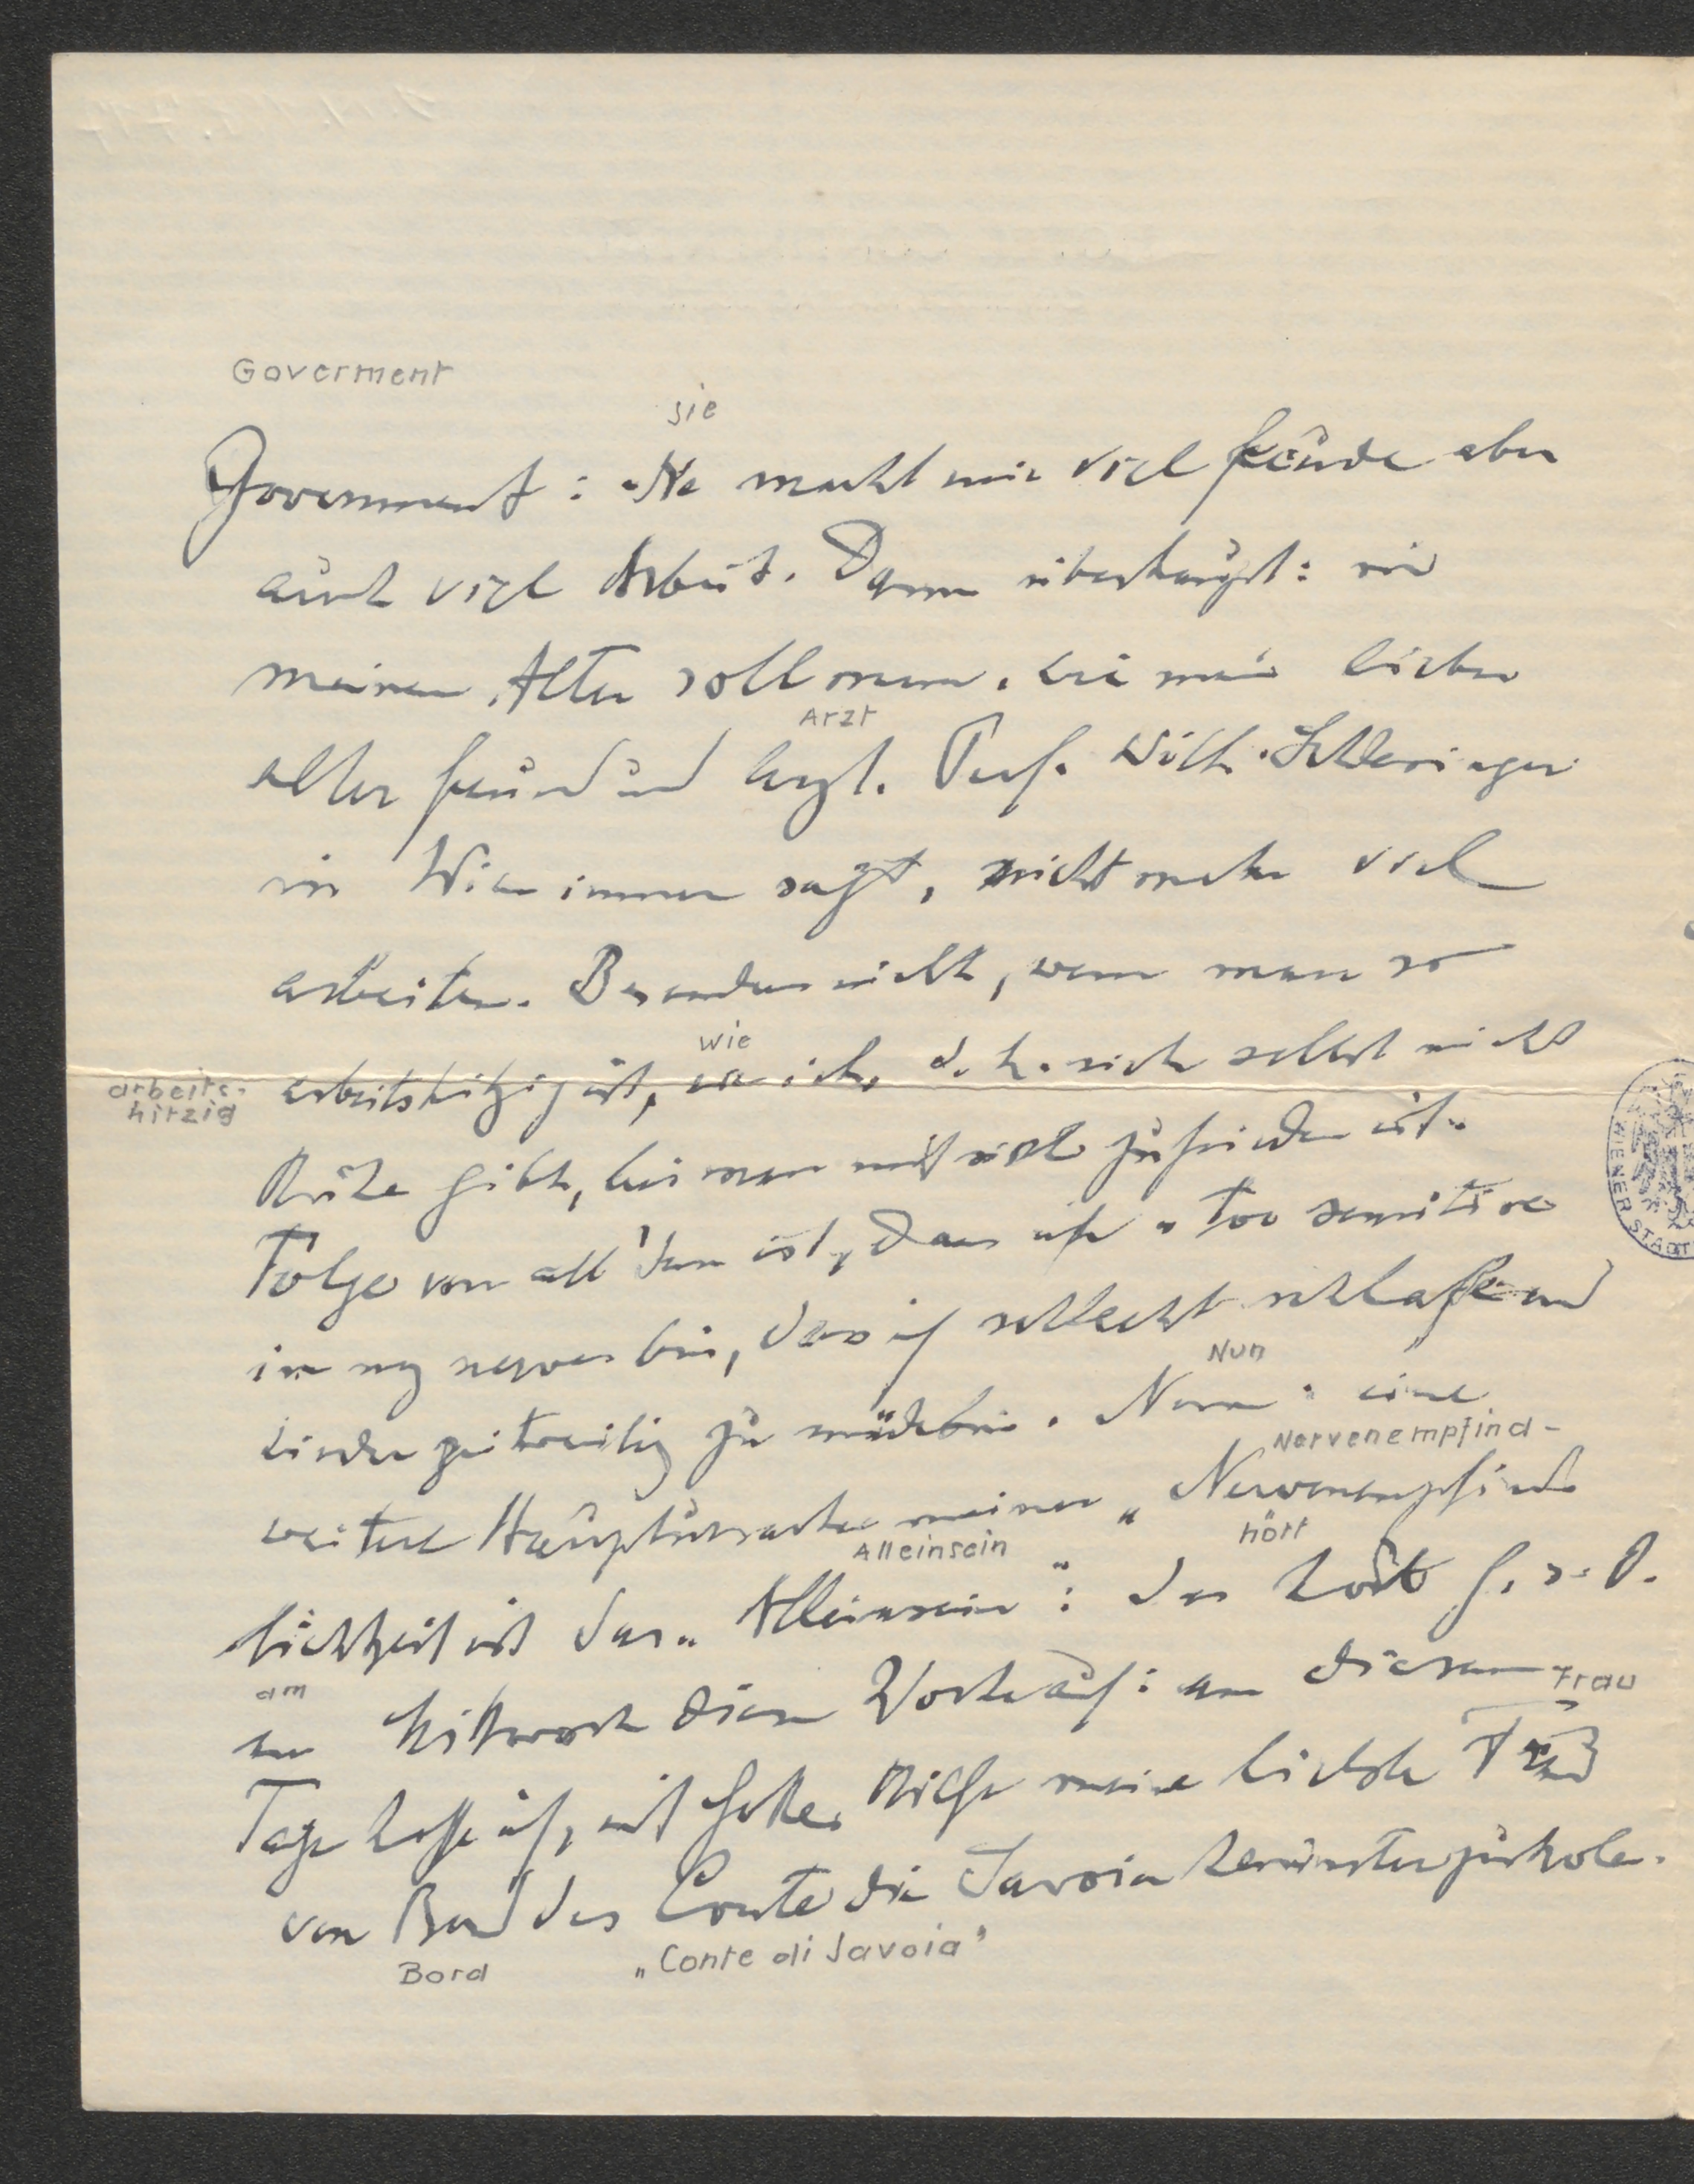 Goverment
sie
Government: Sie macht mir viel Freude aber
auch viel Arbeit. Dann überhaupt: in
meinem Alter soll man, wie mein lieber
Arzt
alter Freund und Arzt. Prof. Wilh. Schlesinger
in Wien immer sagt, nicht mehr viel
arbeiten. Besonders nicht, wenn man so
wie
arbeits-
hitzig
arbeitshitzig ist, wie ich, d. h. sich selbst nicht
Ruhe gibt, bis man mit sich zufrieden ist.
Folge von all' dem ist, dass ich "too sensitive
in my nerves bin, dass ich schlecht schlafe und
Nun
leider zeitweilig zu müde bin. Nun: eine
Nervenempfind-
weitere Hauptursache meiner „Nervenempfind-
Alleinsein
hört
lichkeit ist das „Alleinsein": das hört G. s. D.
am
am Mittwoch dieser Woche auf: an diesem
Frau
Tage hoffe ich, mit Gottes Hilfe meine liebste Frau
von Bord des Conte di Savoia herunterzuholen.
Bord
„Conte di Savoia"
WIENER STADT